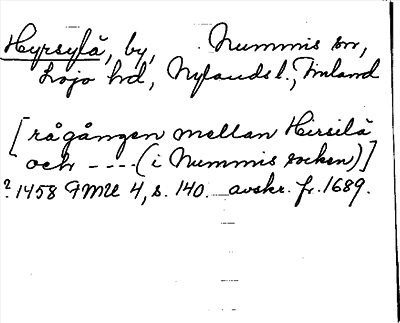 Hyrsylä, by, Nummis sn,
Lojo hd, Nylands l., Finland
[rågången mellan Hirsilä
och ---- (i Nummis socken)]
?1458 FMU 4, s. 140. avskr. fr. 1689.